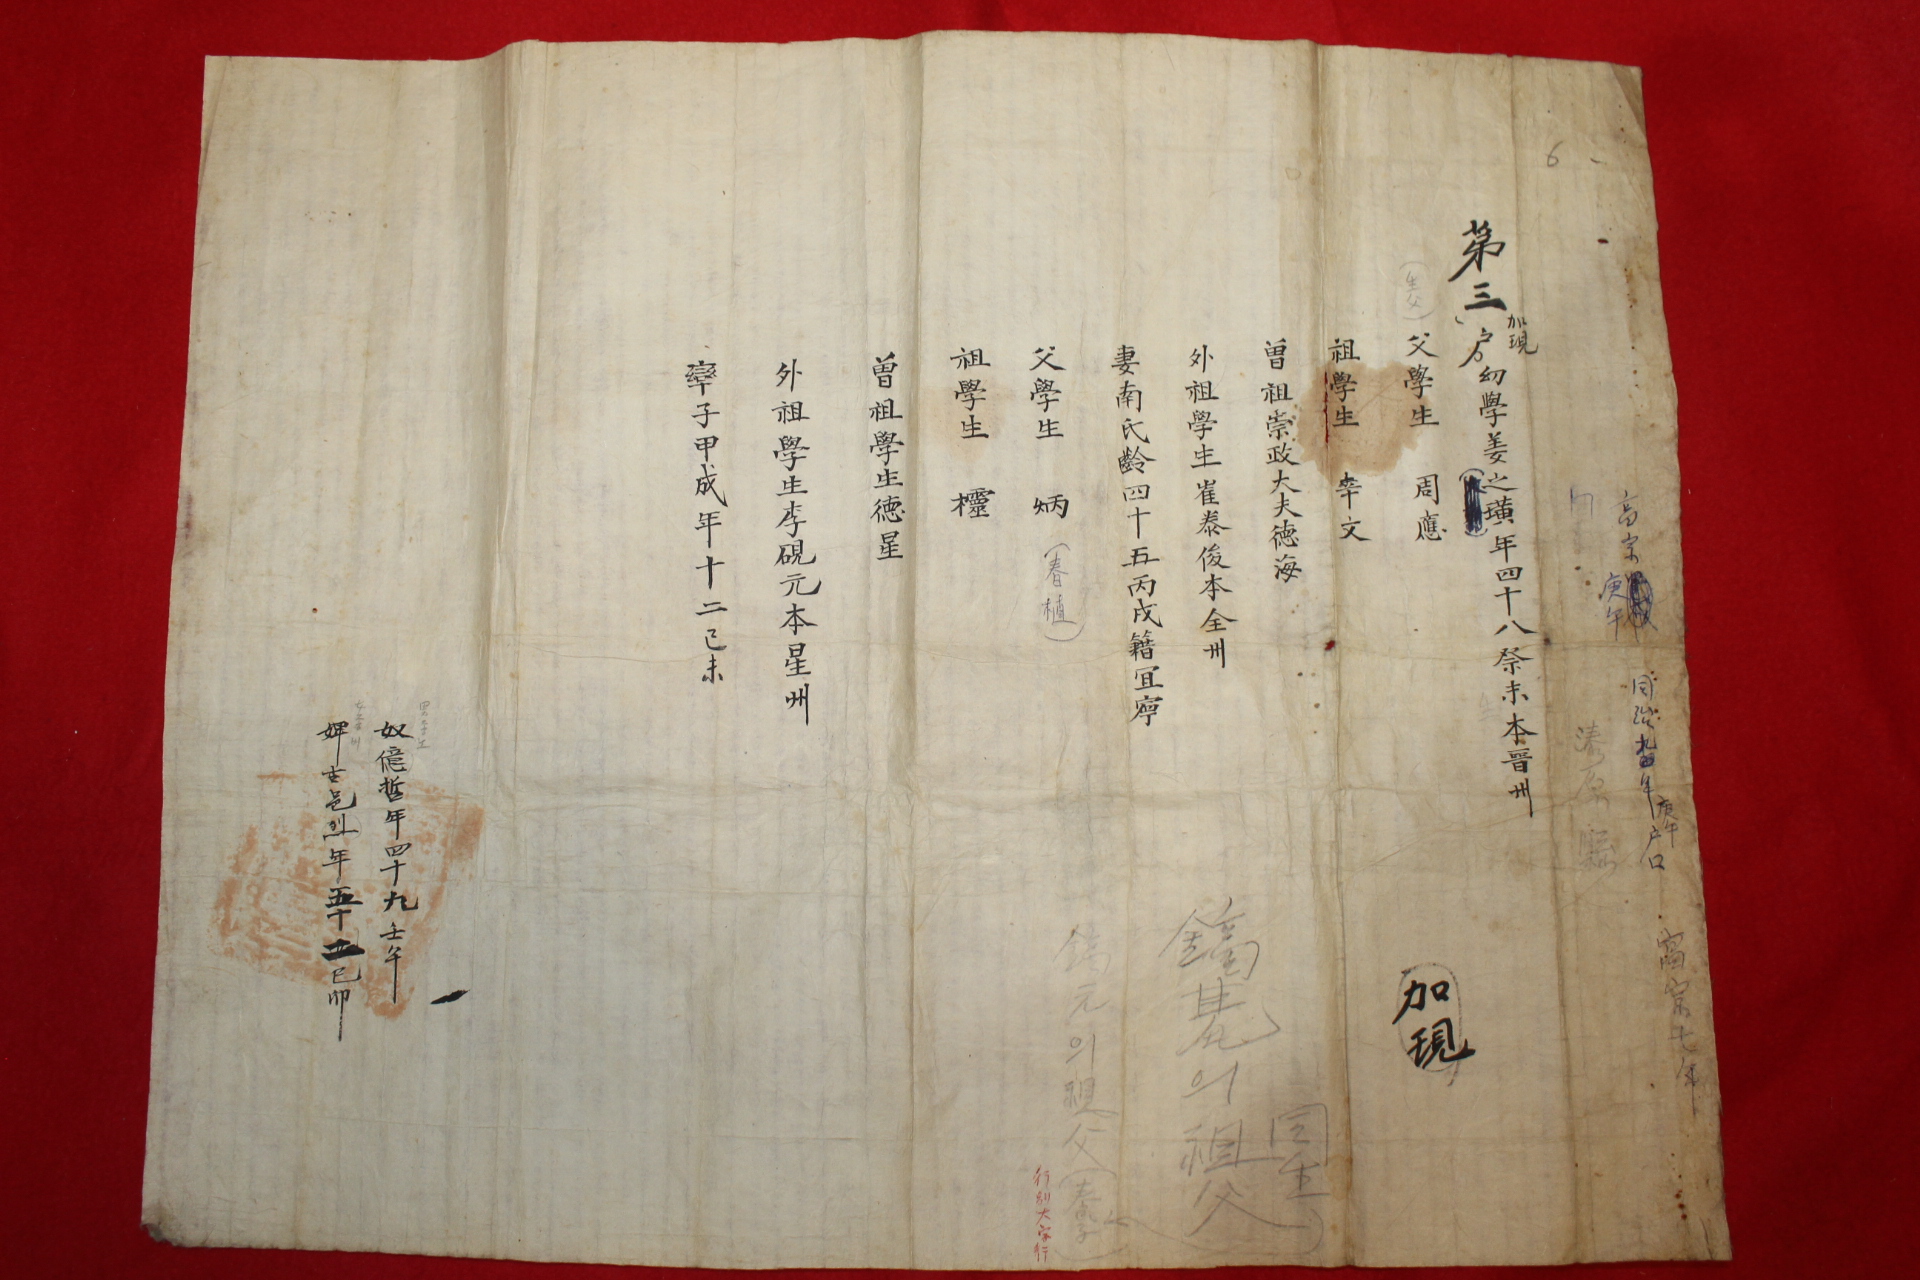 高宗 庚午
同治九年庚午户口
高宗七年
漆原縣
6
第三户
加現
幼學姜之璜年四十八癸未本晋州
加現
生父
父學生 周應
祖學生 幸文
曾祖崇政大夫德海
外祖學生崔泰俊本全州
妻南氏齡四十五丙戌籍宜寧
父學生 炳
(春植)
祖學生 欞
曾祖學生德星
外祖學生李硯元本星州
率子甲成年十二己未
의祖父
元의祖父
行別大字行
奴億哲年四十九壬午
婢 年五十二己卯